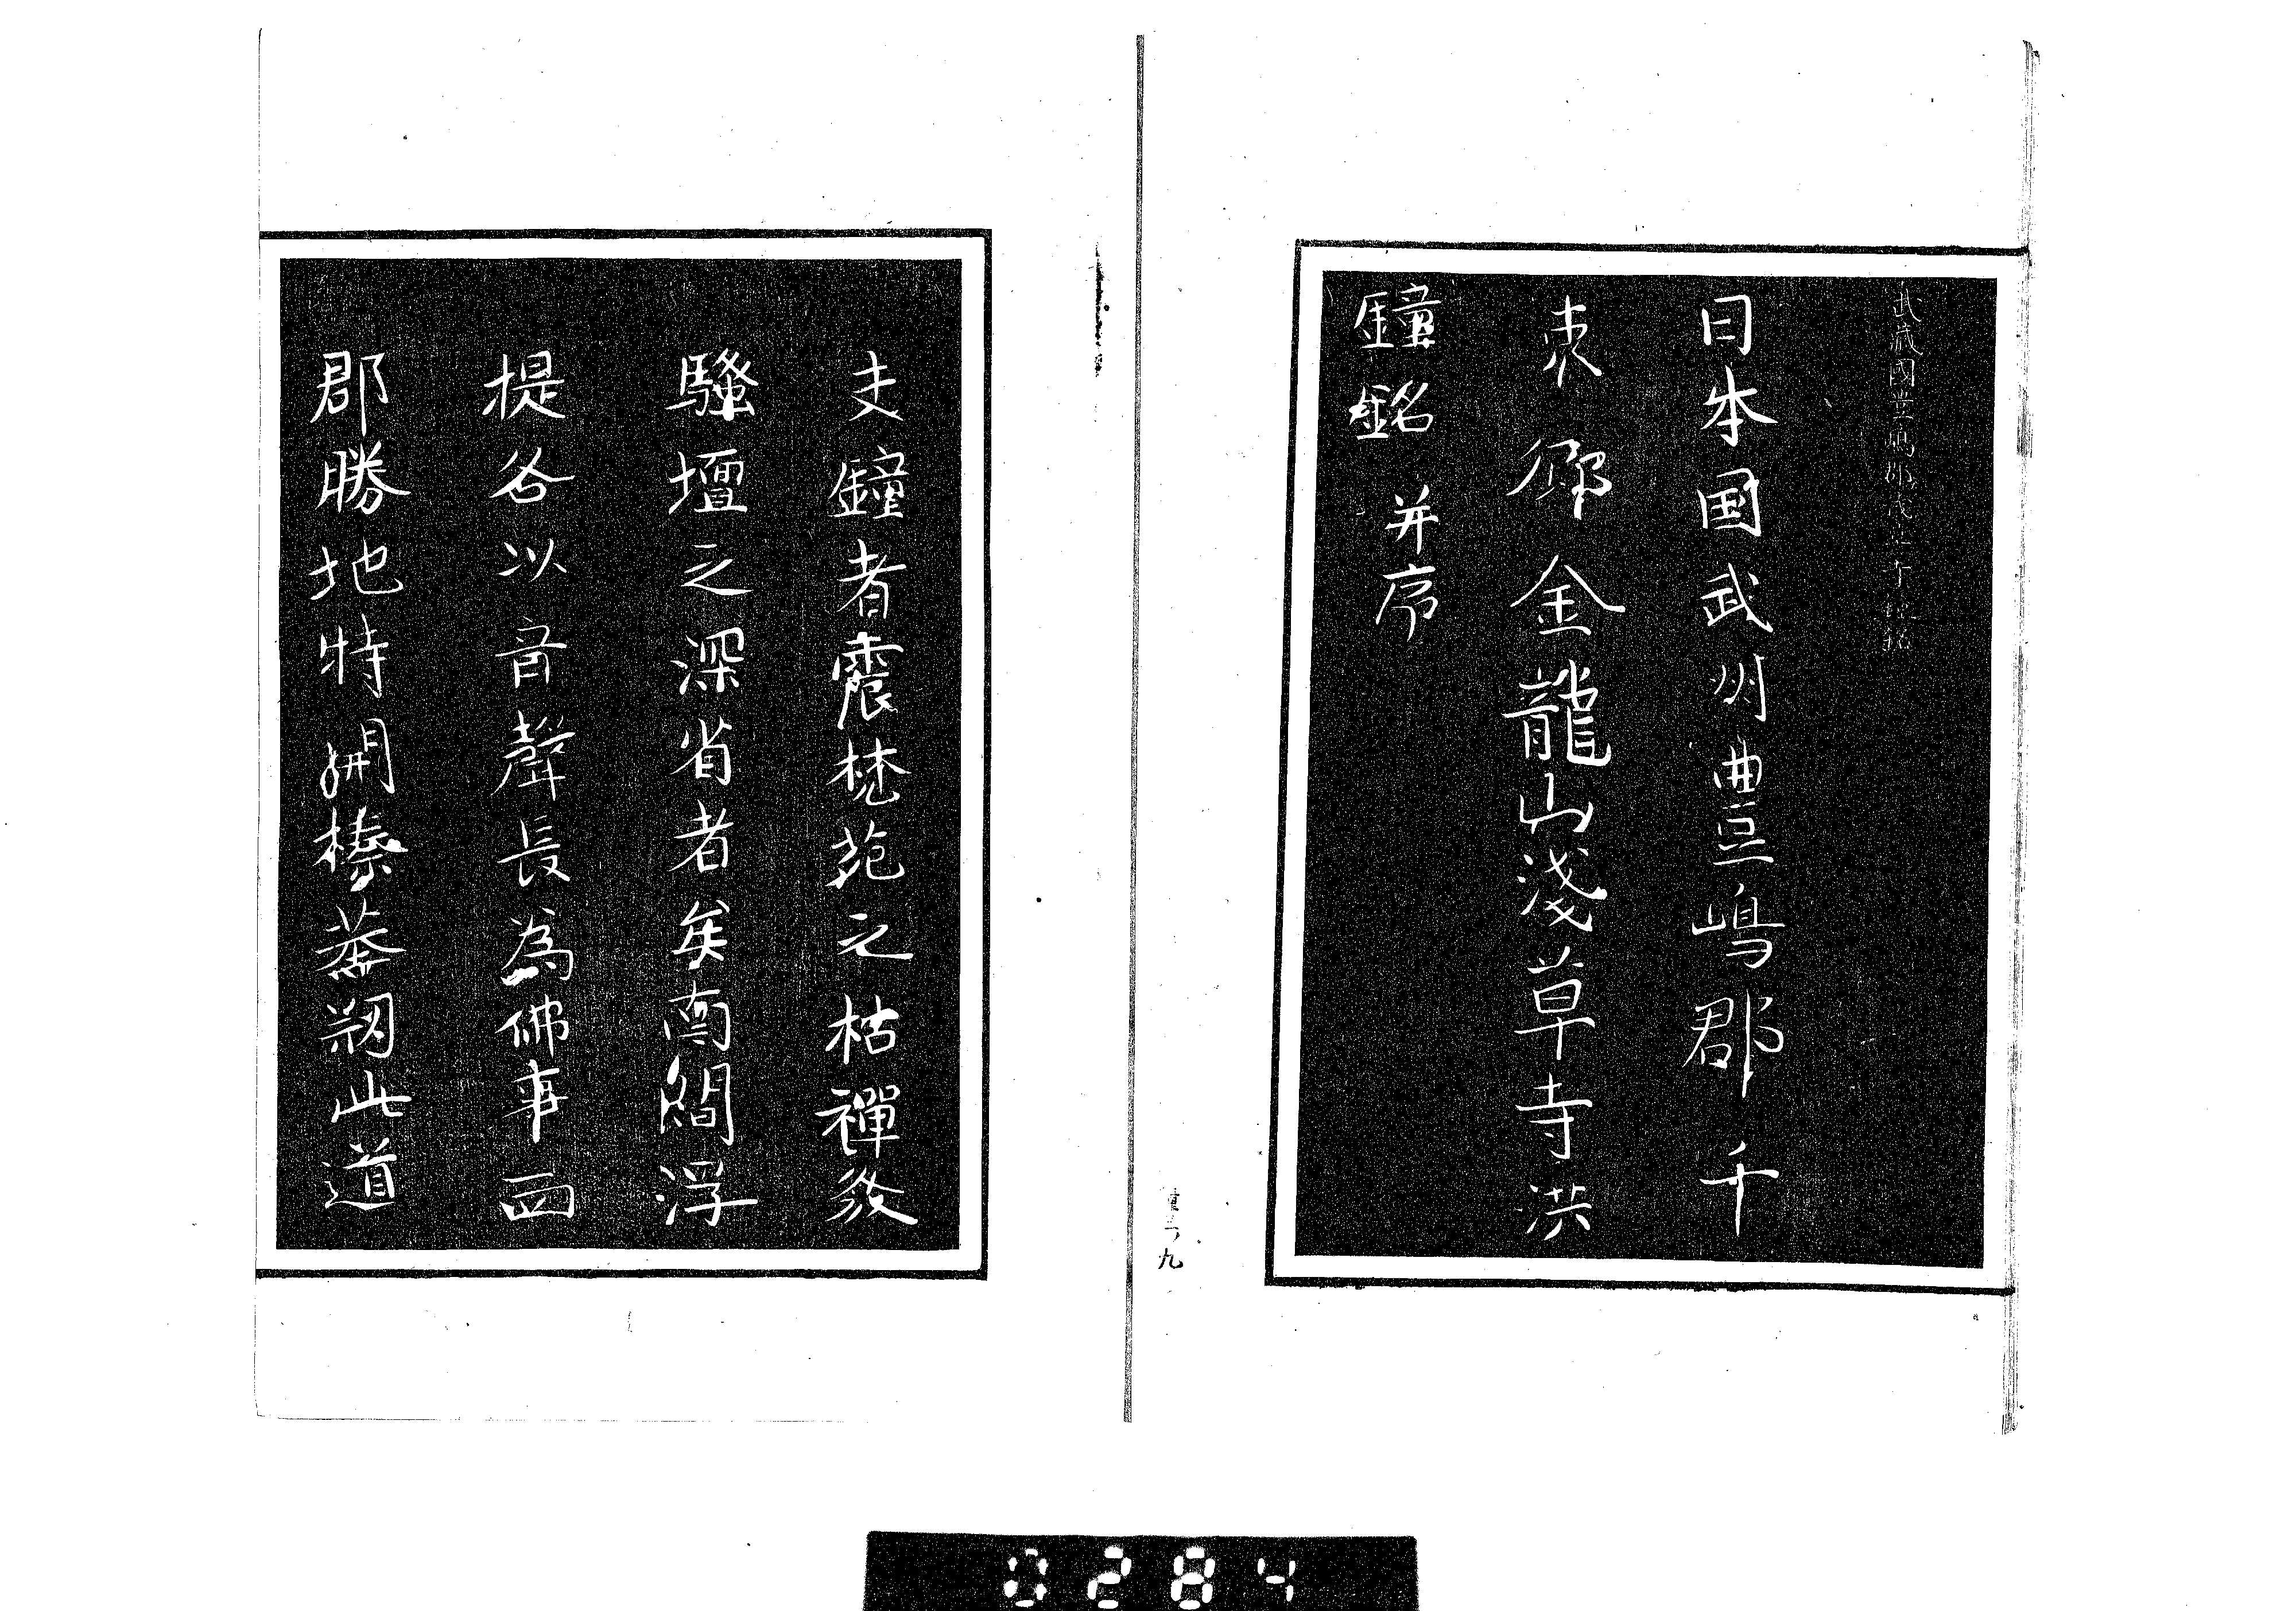 武藏國豊嶋郡浅草寺鐘銘
日本国武州豊嶋郡千
束郷金龍山淺草寺洪
鐘銘 并序
九
夫鐘者震梵苑之枯禪發
騷壇之深省者矣南閻浮
提各以音聲長為佛事西
郡勝地特開榛莽剏此道
0284